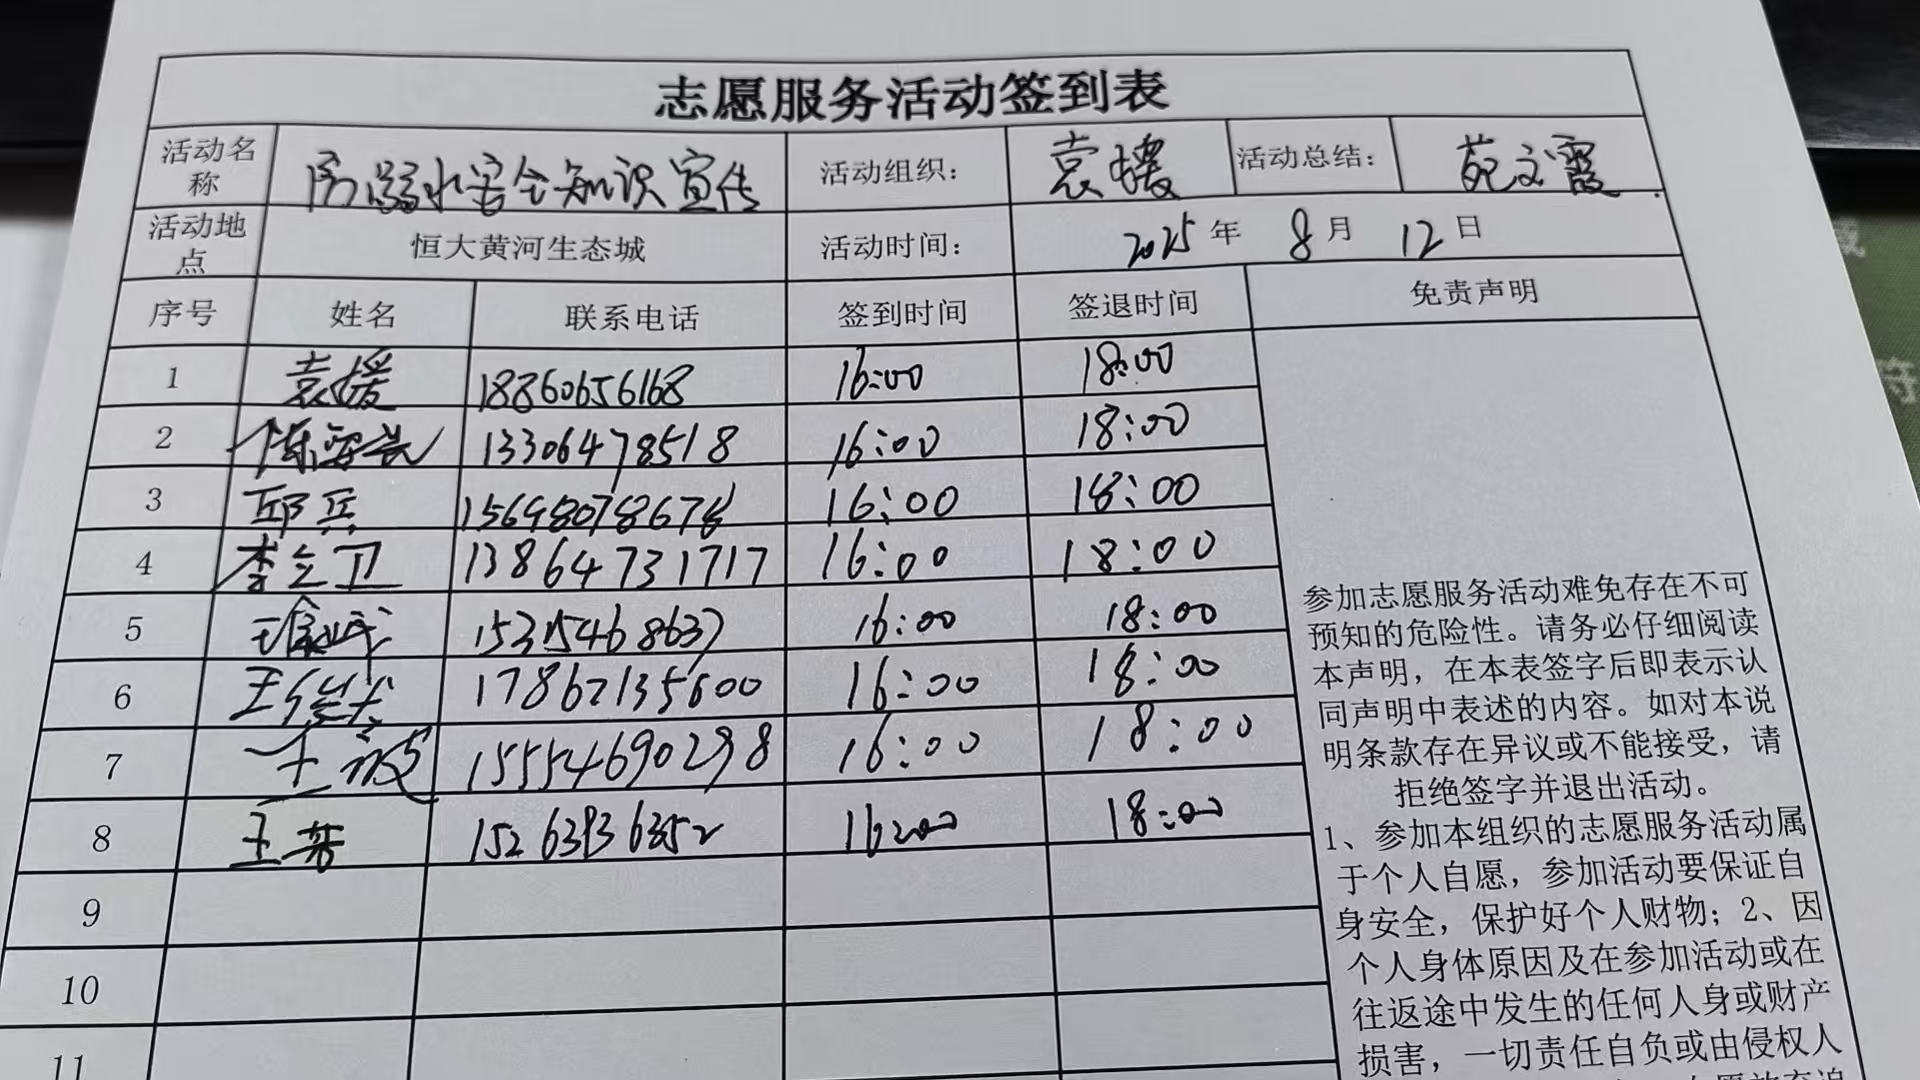 志愿服务活动签到表
活动名称 防溺水安全知识宣传 活动组织： 袁媛 活动总结： 苑文霞
活动地点 恒大黄河生态城 活动时间： 2025年 8月 12日
序号 姓名 联系电话 签到时间 签退时间 免责声明
1 袁媛 18860656168 16:00 18:00
2 13306478518 16:00 18:00
3 邱兵 15698078676 16:00 18:00
4 李立卫 13864731717 16:00 18:00
5 15315468637 16:00 18:00
6 17862135600 16:00 18:00
7 15554690298 16:00 18:00
8 王荣 15263936352 16:00 18:00
9
10
11
参加志愿服务活动难免存在不可
预知的危险性。请务必仔细阅读
本声明，在本表签字后即表示认
同声明中表述的内容。如对本说
明条款存在异议或不能接受，请
拒绝签字并退出活动。
1、参加本组织的志愿服务活动属
于个人自愿，参加活动要保证自
身安全，保护好个人财物；2、因
个人身体原因及在参加活动或在
往返途中发生的任何人身或财产
损害，一切责任自负或由侵权人